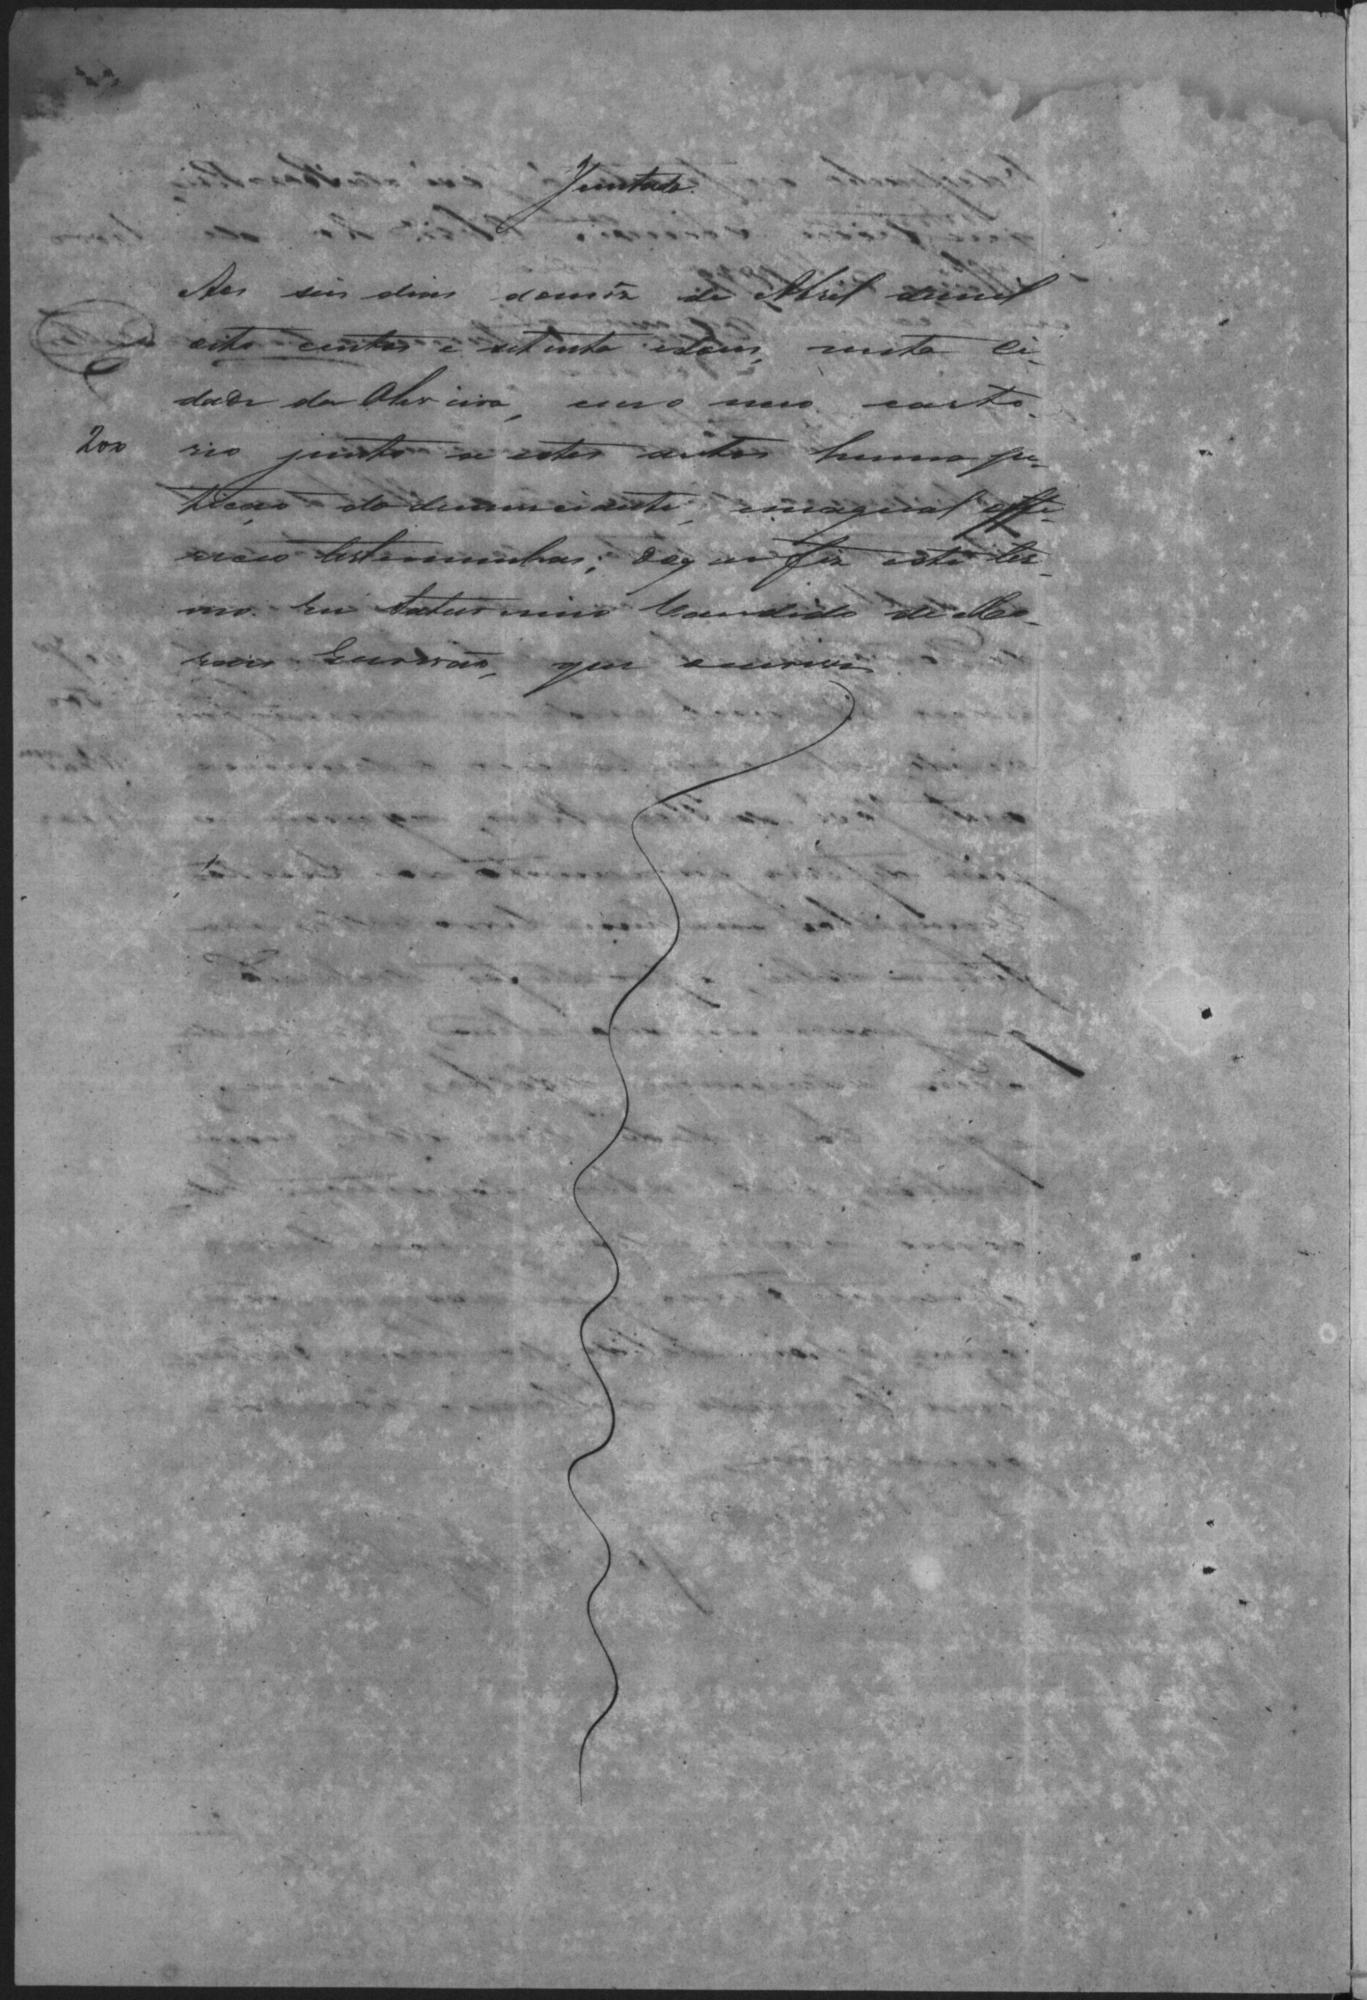 Juntada.
Aos seis dias domez de Abril demil
oito centos e setenta eseis, nesta Ci-
dade da Oliveira, em o meo carto-
200
rio junto a estes autos huma pe-
tiçao do denunciante, enaqual offe-
receo testemunhas; doq' ar fiz este ter-
mo. Eu Saturnino Candido de Mo-
raes Escrivão, que escrevi